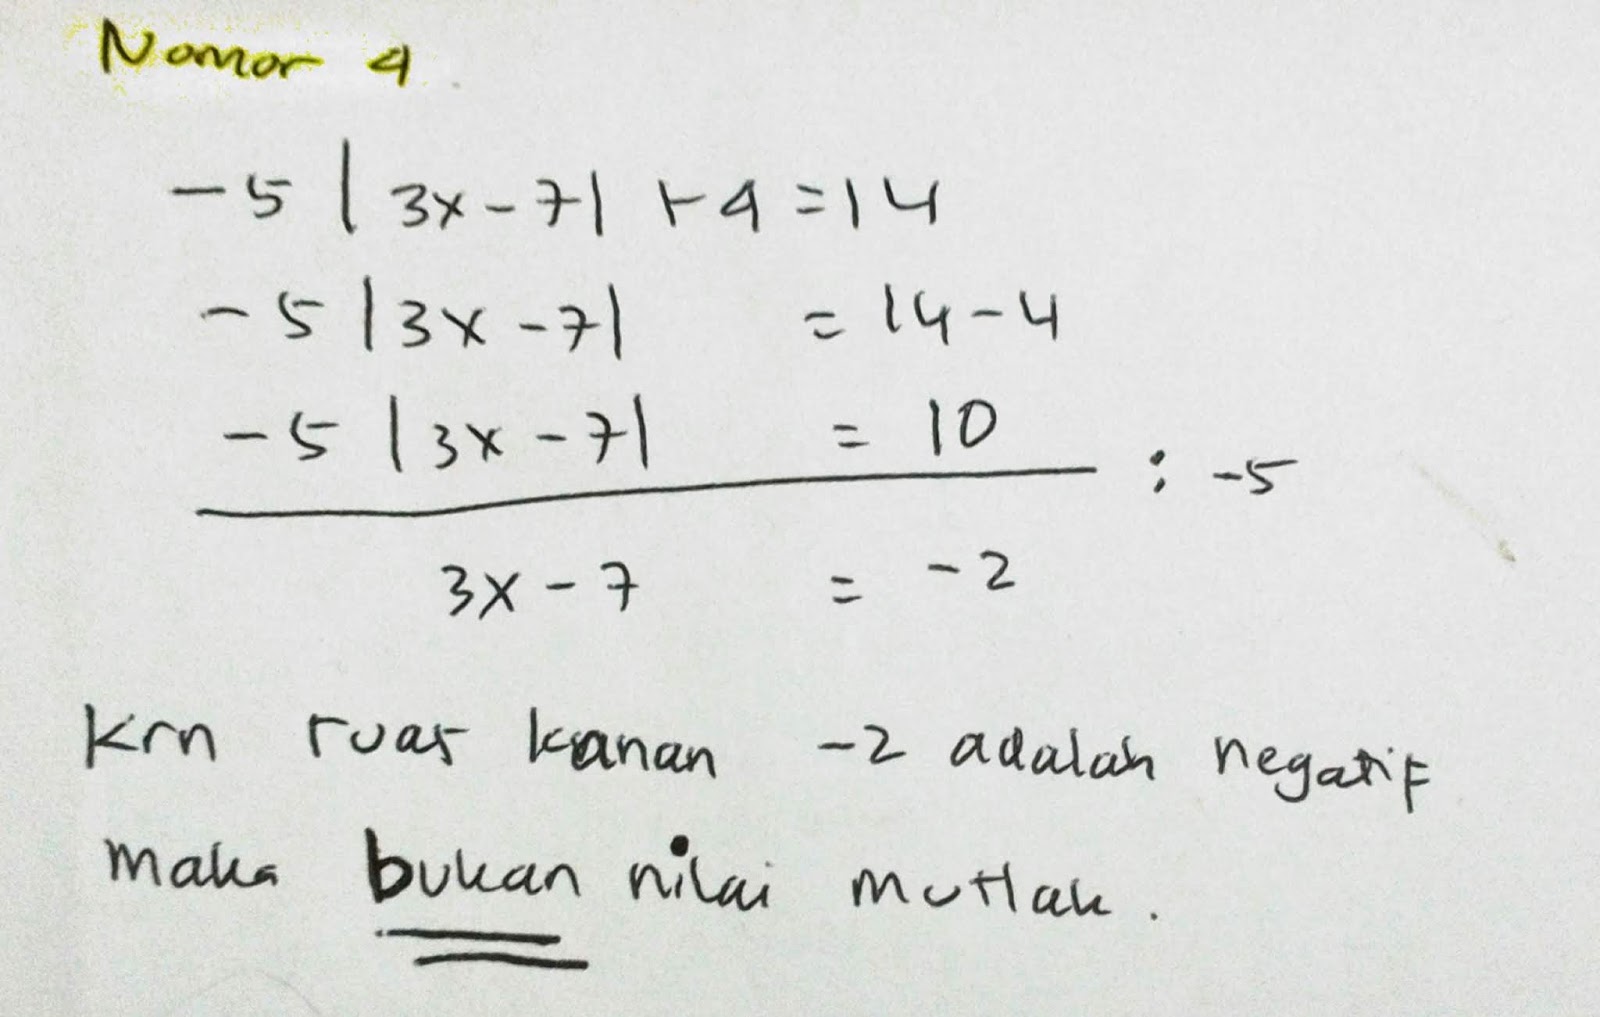 Nomor 4
-5 | 3x - 7| + 4 = 14
-5 |3x - 7| = 14 - 4
-5 |3x - 7| = 10
: -5
3x - 7 = -2
Krn ruas kanan -2 adalah negatif
maka bukan nilai mutlak.